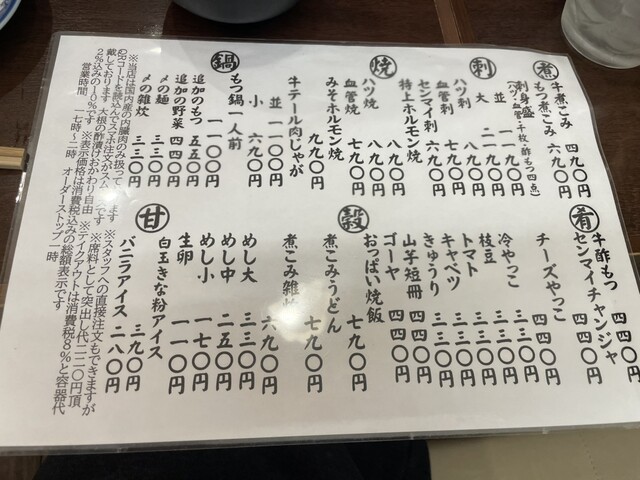 煮
牛煮こみ 四九〇円
もつ煮こみ 六九〇円
刺
刺身盛
並 一一九〇円
大 二一九〇円
ハツ刺 七九〇円
血管刺 七九〇円
センマイ刺 六九〇円
焼
特上ホルモン焼
八九〇円
ハツ焼 八九〇円
血管焼 七九〇円
みそホルモン焼
九九〇円
牛テール肉じゃが
並 一一〇〇円
小 六九〇円
鍋
もつ鍋一人前
一一〇〇円
追加のもつ 五五〇円
追加の野菜 四四〇円
〆の麺 三三〇円
〆の雑炊 三三〇円
肴
牛酢もつ 四四〇円
センマイチャンジャ
四四〇円
チーズやっこ
四四〇円
冷やっこ 三三〇円
枝豆 三三〇円
トマト 三三〇円
キャベツ 三三〇円
きゅうり 三三〇円
山芋短冊 四四〇円
ゴーヤ 四四〇円
穀
おっぱい焼飯
七九〇円
煮こみうどん
七九〇円
煮こみ雑炊
六九〇円
めし大 三三〇円
めし中 二五〇円
めし小 一七〇円
生卵 一一〇円
甘
白玉きな粉アイス
三九〇円
バニラアイス 二八〇円
※当店は国内産の内臓肉のみ扱って
ます ※スタッフへの直接注文もできますが
QRコードを読込んでスマホ注文がスム
ズです ※席料として突出し代二二〇円頂
戴しております 大根の酢漬けおかわり自由 ※テイクアウトは消費税8％と容器代
2％込みの10％です ※表示価格は消費税込みの総額表示です
営業時間 一七時〜二時 オーダーストップ一時